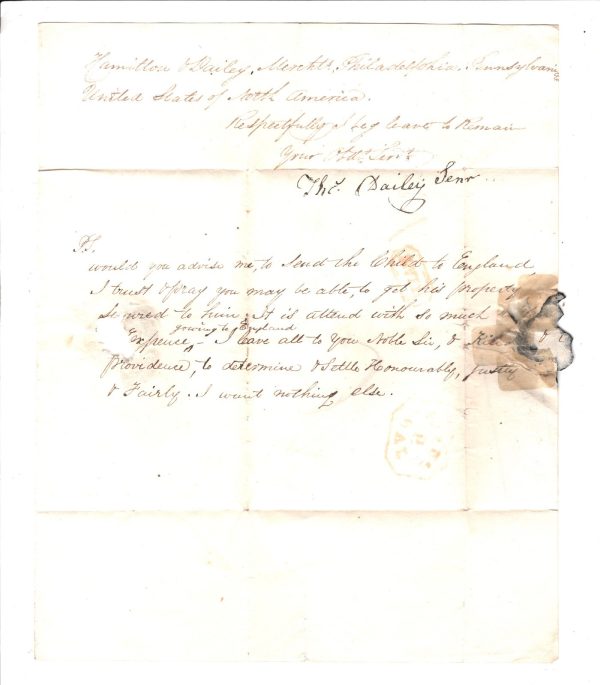 Hamilton & Dailey, Merchts. Philadelphia. Pennsylvania
United States of North America.
Respectfully I beg leave to Remain
Your Obdt. Servt.
Tho. Dailey Senr
PS.
would you advise me, to Send the Child to England,
I trust & pray you may be able, to get his property
Secured to him. It is attend with so much
going to England
Expence, I leave all to You Noble Sir, &
Providence, to determine & Settle Honourably, Justly
& Fairly. I want nothing else.